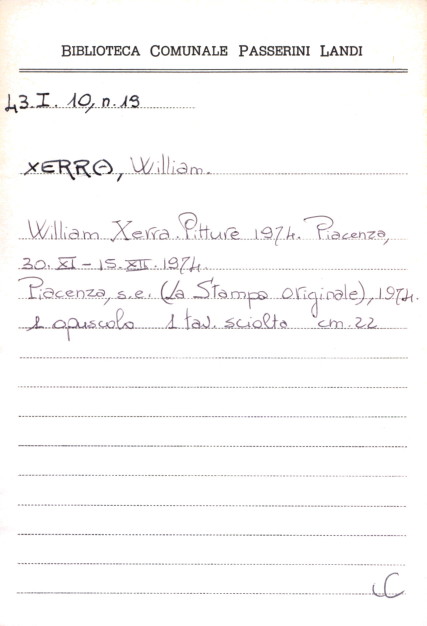 BIBLIOTECA COMUNALE PASSERINI LANDI
43.I. 10, n. 19
XERRA, William.
William Xerra. Pitture 1974. Piacenza,
30. XI - 15. XII. 1974.
Piacenza, s.e. (La Stampa originale), 1974.
1 opuscolo 1 tav. sciolta cm. 22